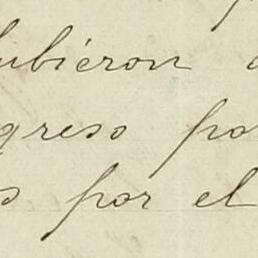 ubiéron
greso po
s por el